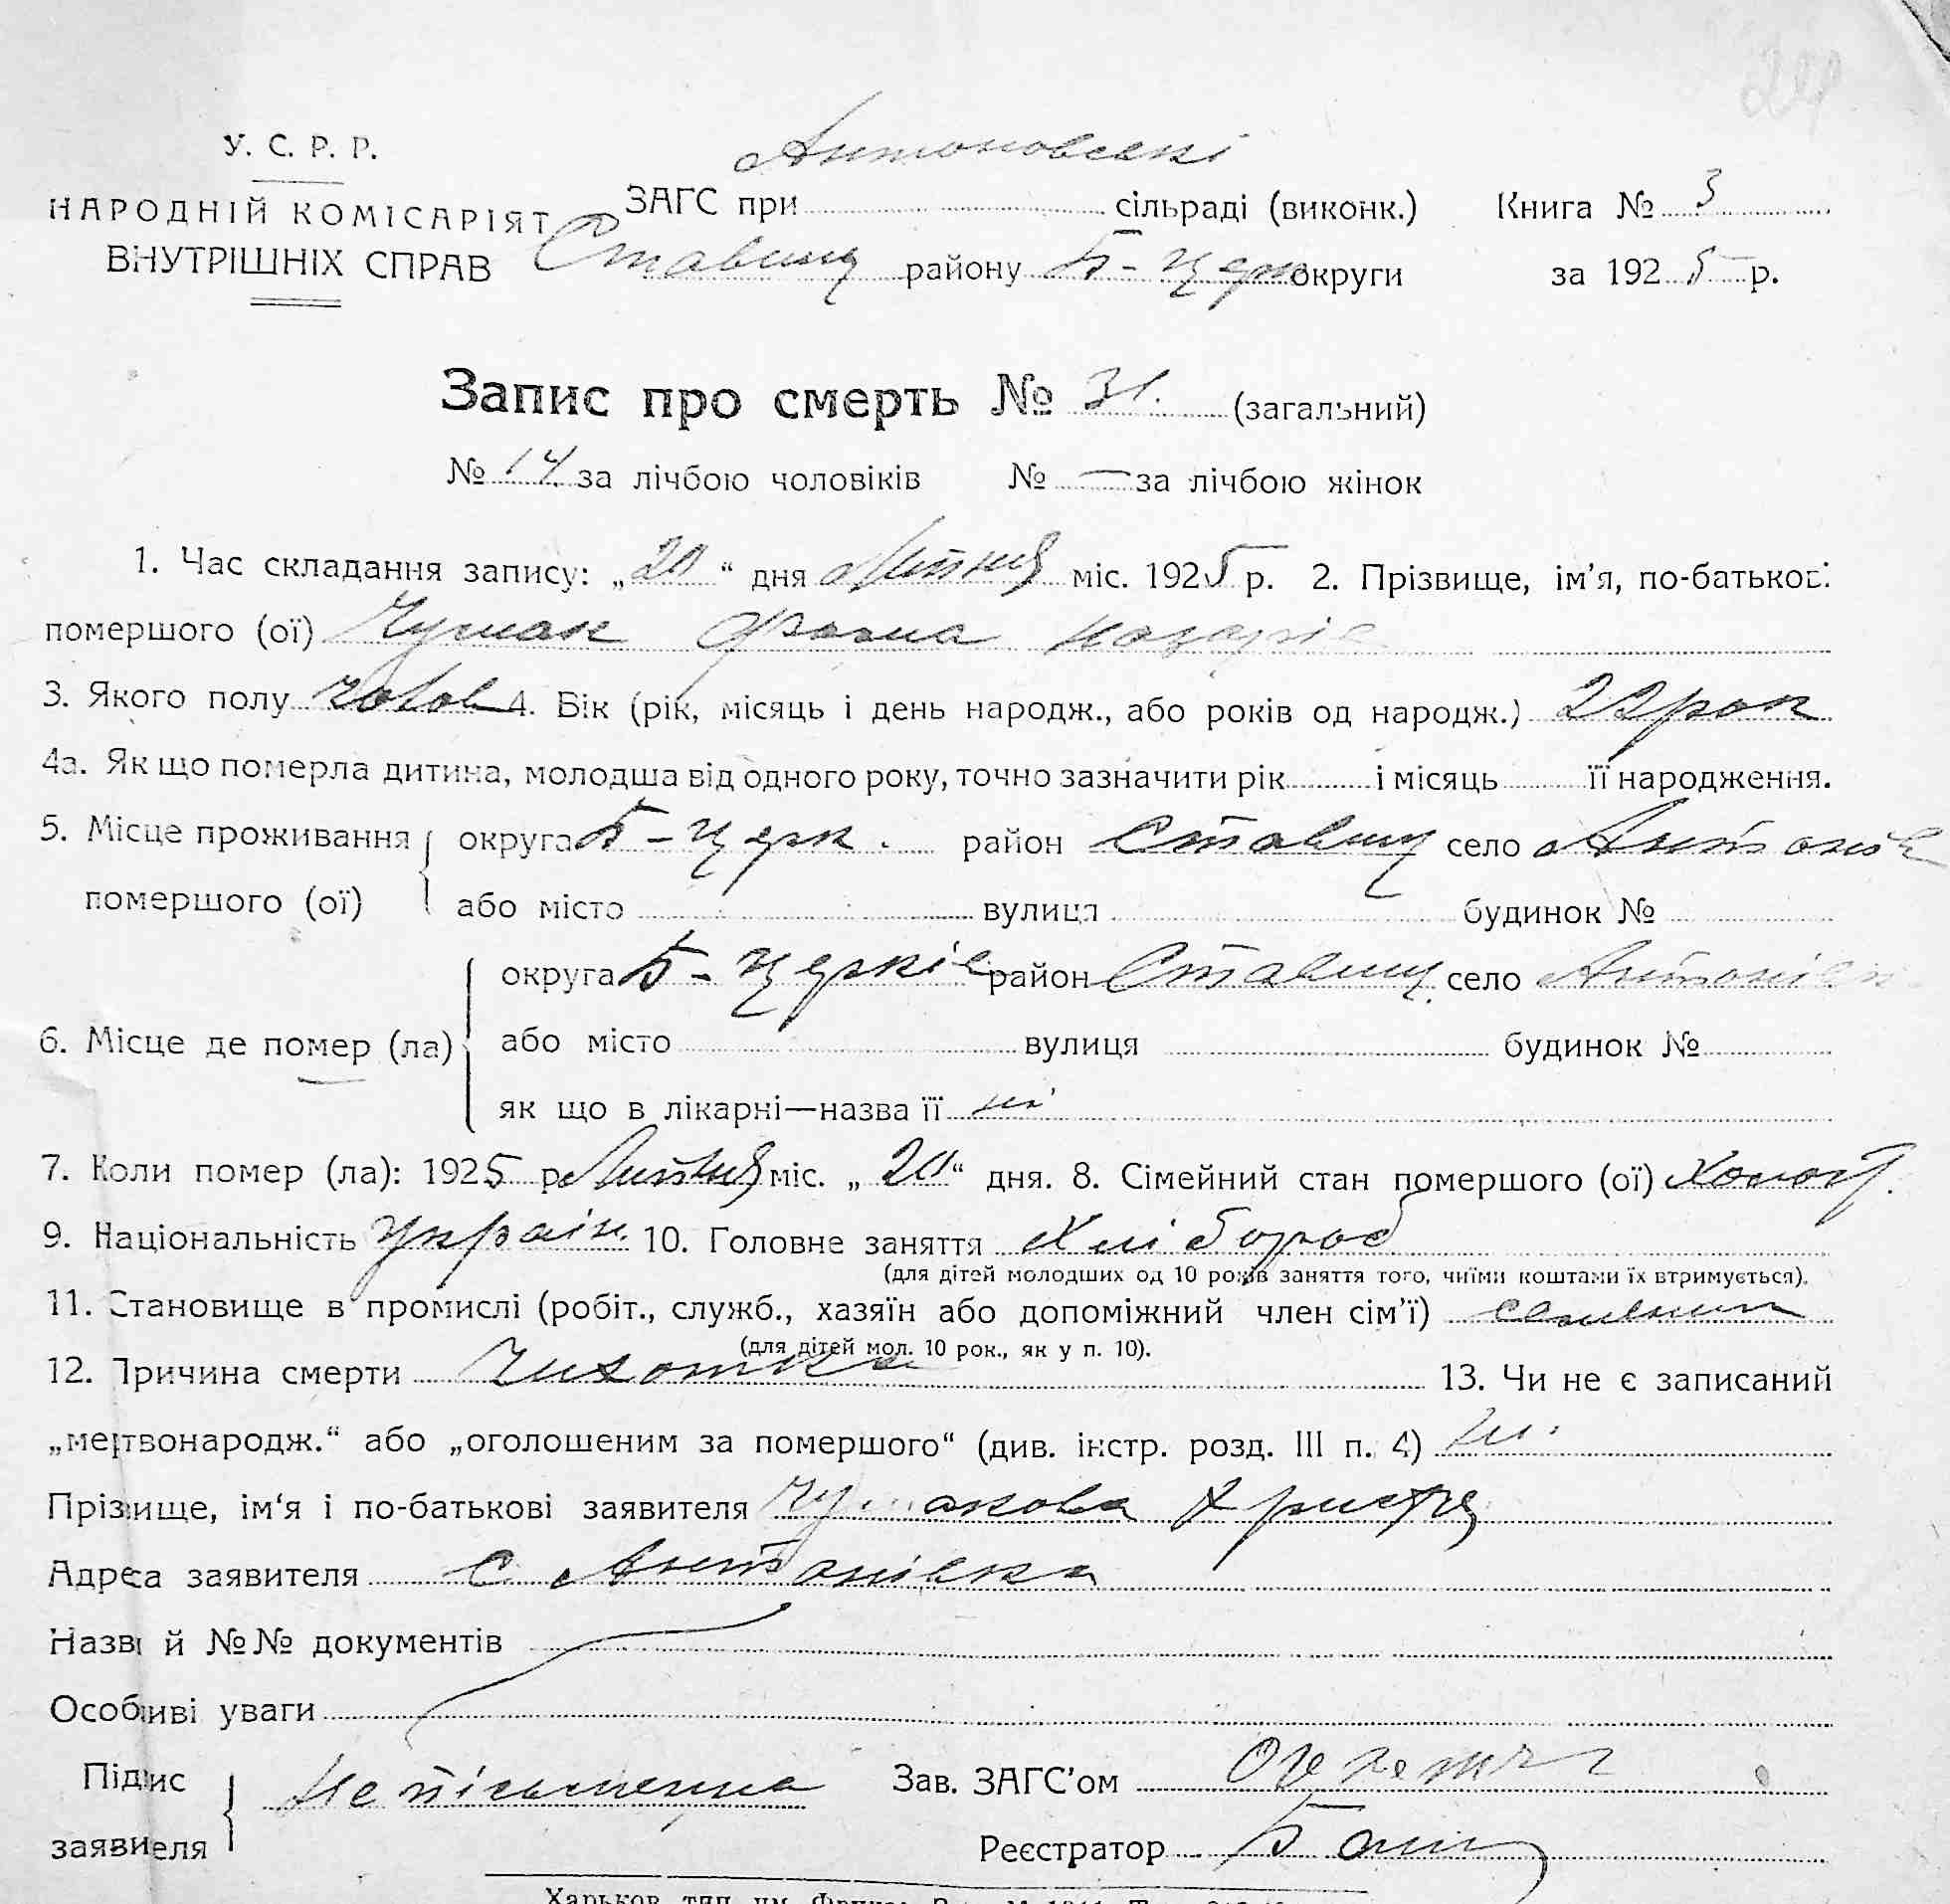 У. С. Р. Р.
Антоновські
НАРОДНІЙ КОМІСАРІЯТ ЗАГС при сільраді (виконк.) Книга № 3
ВНУТРІШНІХ СПРАВ Ставищ району Б-Церк округи за 1925 р.
Запис про смерть № 31. (загальний)
№ 14 за лічбою чоловіків № — за лічбою жінок
1. Час складання запису: „20“ дня Липня міс. 1925 р. 2. Прізвище, ім’я, по-батькові
помершого (ої) Чумак Фома Назарів
3. Якого полу чолов 4. Вік (рік, місяць і день народж., або років од народж.) 22 рок
4а. Як що померла дитина, молодша від одного року, точно зазначити рік і місяць її народження.
5. Місце проживання округа Б-Церк. район Ставищ село Антонів
помершого (ої) або місто вулиця будинок №
округа Б-Церків район Ставищ село Антонівк
6. Місце де помер (ла) або місто вулиця будинок №
як що в лікарні—назва її ні
7. Коли помер (ла): 1925 р. Липня міс. „20“ дня. 8. Сімейний стан помершого (ої) холост.
9. Національність Україн. 10. Головне заняття Хлібороб
(для дітей молодших од 10 років заняття того, чиїми коштами їх втримується).
11. Становище в промислі (робіт., служб., хазяїн або допоміжний член сім’ї)
(для дітей мол. 10 рок., як у п. 10).
12. Причина смерти Чихотка 13. Чи не є записаний
„мертвонародж.“ або „оголошеним за помершого“ (див. інстр. розд. III п. 4) ні
Прізвище, ім‘я і по-батькові заявителя Чумакова Христя
Адреса заявителя с Антонівка
Назви й №№ документів
Особливі уваги
Підпис Непісьменна Зав. ЗАГС’ом
заявителя Реєстратор